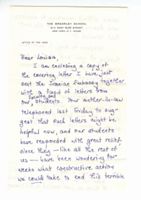 THE BREARLEY SCHOOL
610 EAST 83RD STREET
NEW YORK
OFFICE OF THE HEAD
Dear Louisa,
I am enclosing a copy of
the covering letter I have just
sent the Iranian Embassy together
with a packet of letters from
our faculty and students. Your mother-in-law
telephoned last Friday to sug-
gest that such letters might be
helpful now, and our students
have responded with great relief,
since they — like all the rest of
us — have been wondering for
weeks what constructive action
we could take to end this terrible